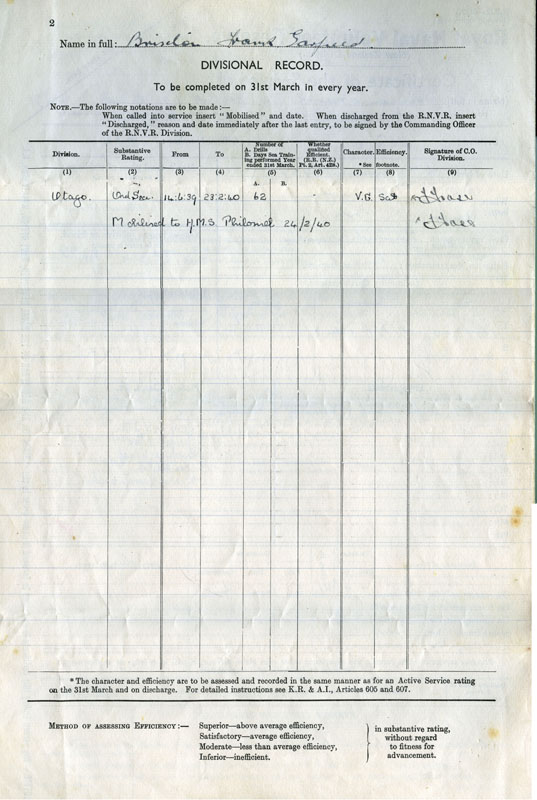 2
Name in full:
DIVISIONAL RECORD.
To be completed on 31st March in every year.
NOTE.—The following notations are to be made :—
When called into service insert "Mobilised" and date. When discharged from the R.N.V.R. insert
"Discharged," reason and date immediately after the last entry, to be signed by the Commanding Officer
of the R.N.V.R. Division.
Division. Substantive Rating. From To Number of A. Drills B. Days Sea Training performed Year ended 31st March. Whether qualified Efficient. (K.R. (N.Z.) Pt. 2, Art. 428.) Character. Efficiency. * See footnote. Signature of C.O. Division.
(1) (2) (3) (4) (5) (6) (7) (8) (9)
A. B.
Otago. Ord Sea. 14.6.39 23.2.40 62 V.G. Sat
to H.M.S. Philomel 24/2/40
* The character and efficiency are to be assessed and recorded in the same manner as for an Active Service rating
on the 31st March and on discharge. For detailed instructions see K.R. & A.I., Articles 605 and 607.
METHOD OF ASSESSING EFFICIENCY :— Superior—above average efficiency,
Satisfactory—average efficiency,
Moderate—less than average efficiency,
Inferior—inefficient.
in substantive rating,
without regard
to fitness for
advancement.